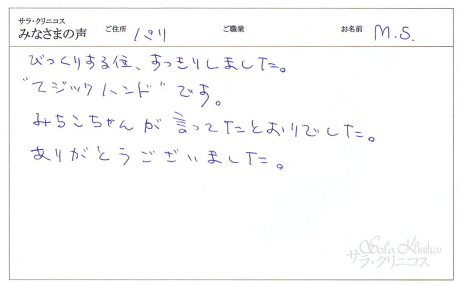 サラ・クリニコス
みなさまの声 ご住所 パリ ご職業 お名前 M.S.
びっくりする位、すっきりしました。
"マジックハンド"です。
みちこちゃんが言ってたとおりでした。
ありがとうございました。
Sala Klinikos
サラ・クリニコス